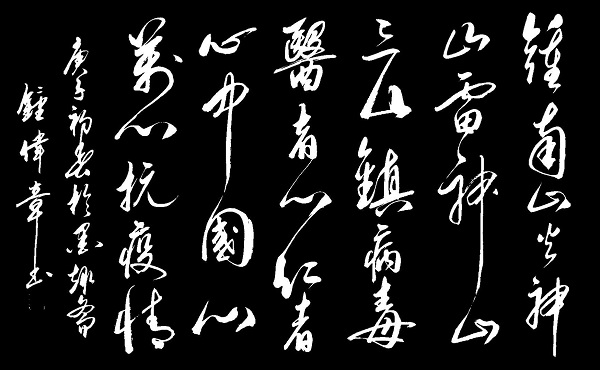 鍾南山炎神
山雷神山
三山鎮病毒
醫者心仁者
心中國心
萬心抗疫情
庚子初春於墨趣齋
鍾偉章書